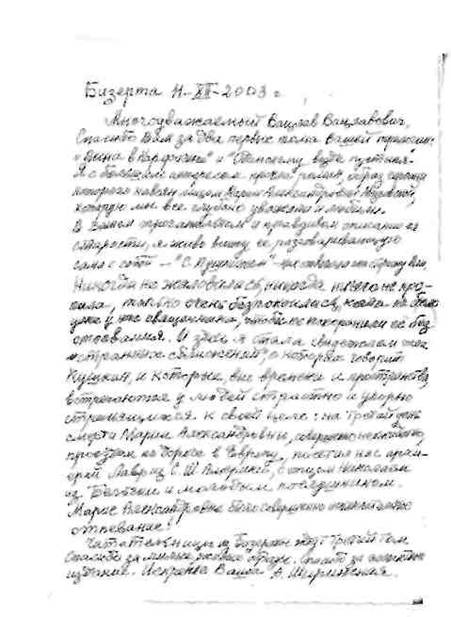 Бизерта 11-XII-2003 г.
Многоуважаемый Вацлав Вацлавович.
Спасибо Вам за два первых тома Вашей трилогии:
и
Я с большим интересом прочла роман, образ героини
которого навеян лицом Марии Александровны
которую мы все глубоко уважали и любили.
В Вашем и правдивом описании её
старости, я живо вижу её разговаривающую
сама с собой — "С Пушком"
Никогда не жаловалась, никогда ничего не про-
сила, только очень беспокоилась, что
уже у нас священника, чтобы не похоронили её без
отпевания. И здесь я стала свидетелем тех
"странных сближений", о которых говорит
Пушкин, и которые, вне времени и пространства
встречаются у людей страстно и упорно
стремящихся к своей цели: на третий день
смерти Марии Александровны, совершенно неожиданно,
проездом на дороге в Европу, посетил нас архи-
ерей Лавр из С.Ш. Америки, с отцом Николаем
из Бельгии и молодым послушником.
Марие Александровне было совершено
отпевание!
Читательницы из Бизерты ждут третий том
Спасибо за милые живые образы. Спасибо за
издание. Искренно Ваша А. Ширинская.